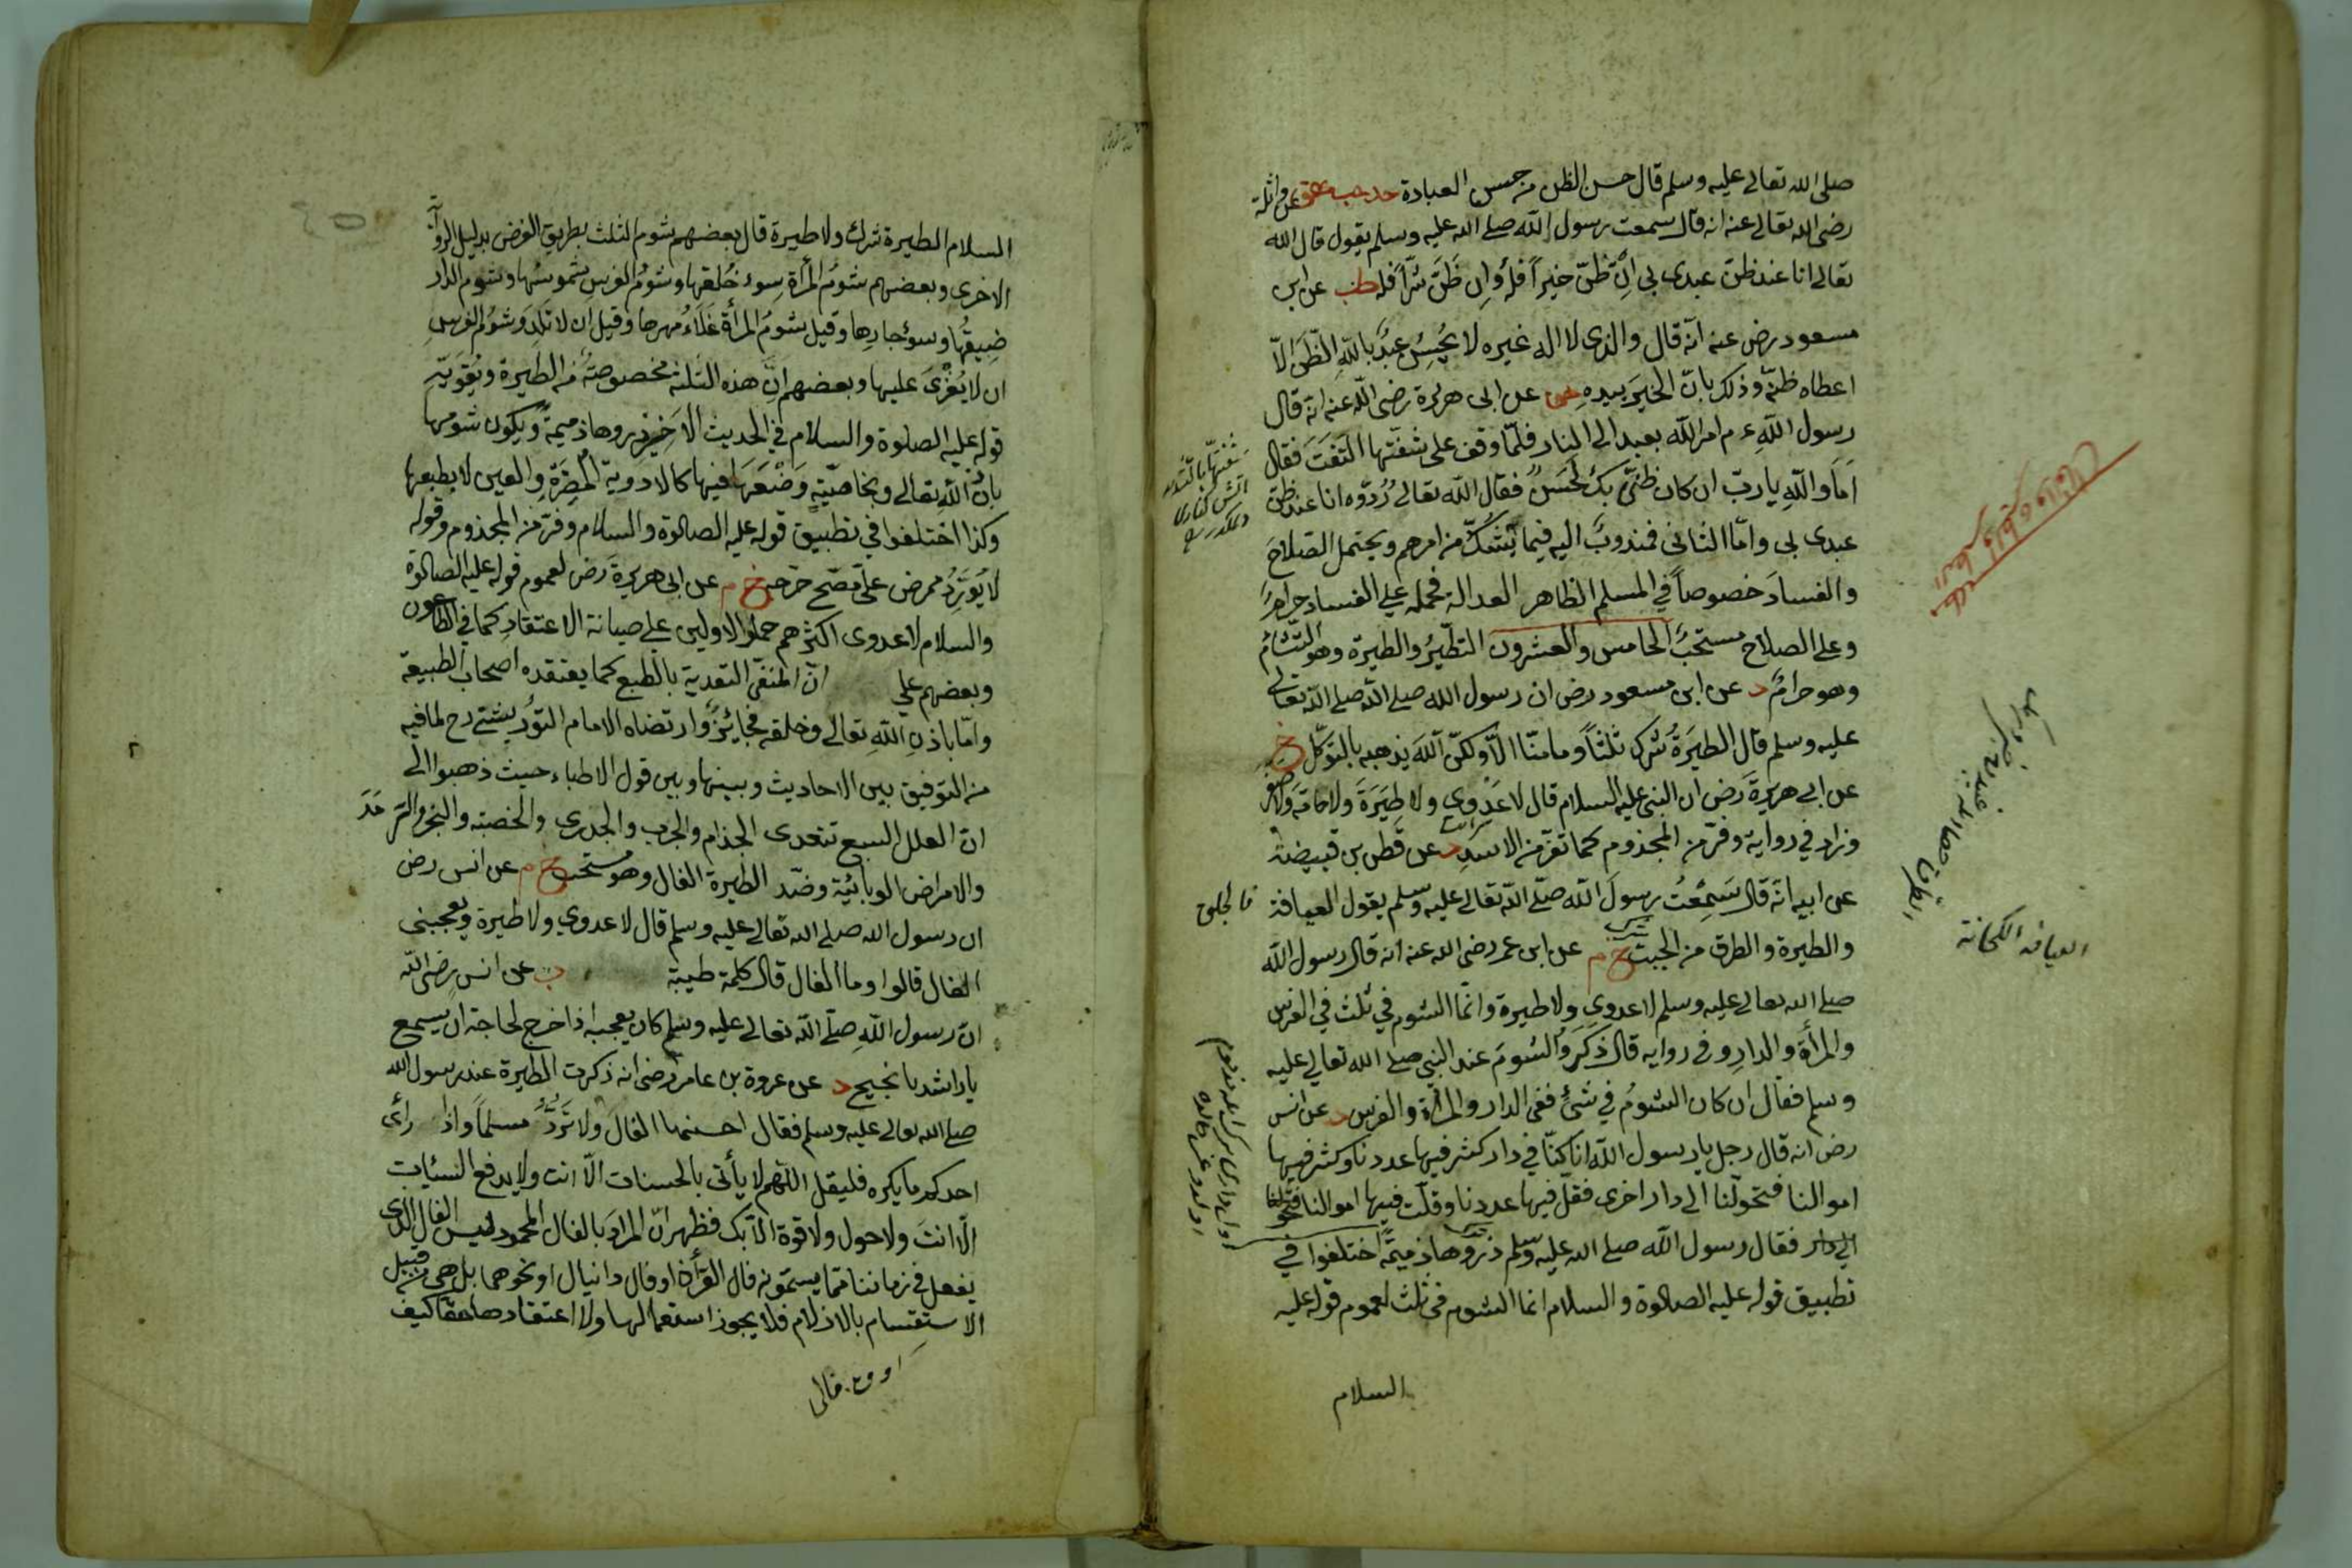 صلى الله تعالى عليه وسلم قال حسن الظن من حسن العبادة حد حب عن واثلة
رضى الله تعالى عنه انه قال سمعت رسول الله صلى الله عليه وسلم يقول قال الله
تعالى انا عند ظن عبدى بى ان ظن خيراً فله وان ظن شراً فله طب عن ابن
مسعود رض عنه انه قال والذى لا اله غيره لا يحسن عبد بالله الظن الا
اعطاه ظنه وذلك بان الخير بيده عن ابى هريرة رضى الله عنه انه قال
رسول الله ء م امر الله بعبد الى النار فلما وقف على شفتها التفت فقال
اما والله يا رب ان كان ظنى بك لحسن فقال الله تعالى ردوه انا عند ظن
عبدى بى واما الثانى فمندوب اليه فيما يشك من امرهم ويحتمل الصلاح
والفساد خصوصاً في المسلم الظاهر العدالة فحمله على الفساد حرام
وعلى الصلاح مستحب الخامس والعشرون التطير والطيرة وهو التشائم
وهو حرام د عن ابن مسعود رض ان رسول الله صلى الله صلى الله تعالى
عليه وسلم قال الطيرة شرك ثلثاً وما منا الا ولكن الله يذهبه بالتوكل خ
عن ابى هريرة رض ان النبى عليه السلام قال لا عدوى ولا طيرة ولا هامة ولا صفر
وزاد في رواية وفر من المجذوم كما تفر من الاسد د عن قطن بن قبيصة
عن ابيه انه قال سمعت رسول الله صلى الله تعالى عليه وسلم يقول العيافة
والطيرة والطرق من الجبت خ م عن ابن عمر رضى الله عنه انه قال رسول الله
صلى الله تعالى عليه وسلم لا عدوى ولا طيرة وانما الشوم في ثلث في الفرس
والمرأة والدار وفى رواية قال ذكروا الشوم عند النبى صلى الله تعالى عليه
وسلم فقال ان كان الشوم في شئ ففى الدار والمرأة والفرس د عن انس
رض انه قال رجل يا رسول الله انا كنا في دار كثر فيها عددنا وكثر فيها
اموالنا فتحولنا الى دار اخرى فقل فيها عددنا وقلت فيها اموالنا
الى دار فقال رسول الله صلى الله عليه وسلم ذروها ذميمة اختلفوا في
تطبيق قوله عليه الصلوة والسلام انما الشوم في ثلث لعموم قوله عليه
السلام
العيافه الكهانة
السلام الطيرة شرك ولا طيرة قال بعضهم شوم الثلث بطريق الفرض بدليل الرواية
الاخرى وبعضهم شوم المرأة سوء خلقها وشوم الفرس شموسها وشوم الدار
ضيقها وسوء جارها وقيل شوم المرأة غلاء مهرها وقيل ان لا تلد وشوم الفرس
ان لا يغزى عليها وبعضهم ان هذه الثلثة مخصوصة من الطيرة ويقويه
قوله عليه الصلوة والسلام في الحديث الاخير ذروها ذميمة ويكون شومها
باذن الله تعالى وبخاصيته وضعها فيها كالادوية المضرة والعين لا بطبعها
وكذا اختلفوا في تطبيق قوله عليه الصلوة والسلام وفر من المجذوم وقوله
لا يورد ممرض على مصح خرجه خ م عن ابى هريرة رض لعموم قوله عليه الصلوة
والسلام لا عدوى اكثرهم حملوا الاولين على صيانة الاعتقاد كما في الطاعون
وبعضهم على ان المنفى التعدية بالطبع كما يعتقده اصحاب الطبيعة
واما باذن الله تعالى وخلقه فجائز وارتضاه الامام التوربشتى رح لما فيه
من التوفيق بين الاحاديث وبينها وبين قول الاطباء حيث ذهبوا الى
ان العلل السبع تتعدى الجذام والجرب والجدرى والحصبة والبخر والرمد
والامراض الوبائية وضد الطيرة الفال وهو مستحب خ م عن انس رض
ان رسول الله صلى الله تعالى عليه وسلم قال لا عدوى ولا طيرة ويعجبنى
الفال قالوا وما الفال قال كلمة طيبة ت عن انس رضى الله
ان رسول الله صلى الله تعالى عليه وسلم كان يعجبه اذا خرج لحاجة ان يسمع
يا راشد يا نجيح د عن عروة بن عامر رضى انه ذكرت الطيرة عند رسول الله
صلى الله تعالى عليه وسلم فقال احسنها الفال ولا ترد مسلماً واذا رأى
احدكم ما يكره فليقل اللهم لا يأتى بالحسنات الا انت ولا يدفع السيئات
الا انت ولا حول ولا قوة الا بك فظهر ان المراد بالفال المحمود ليس الفال الذى
يفعل في زماننا مما يسمونه فال القرأن او فال دانيال او نحوهما بل هى من قبيل
الاستقسام بالازلام فلا يجوز استعمالها ولا اعتقادها حقا كيف